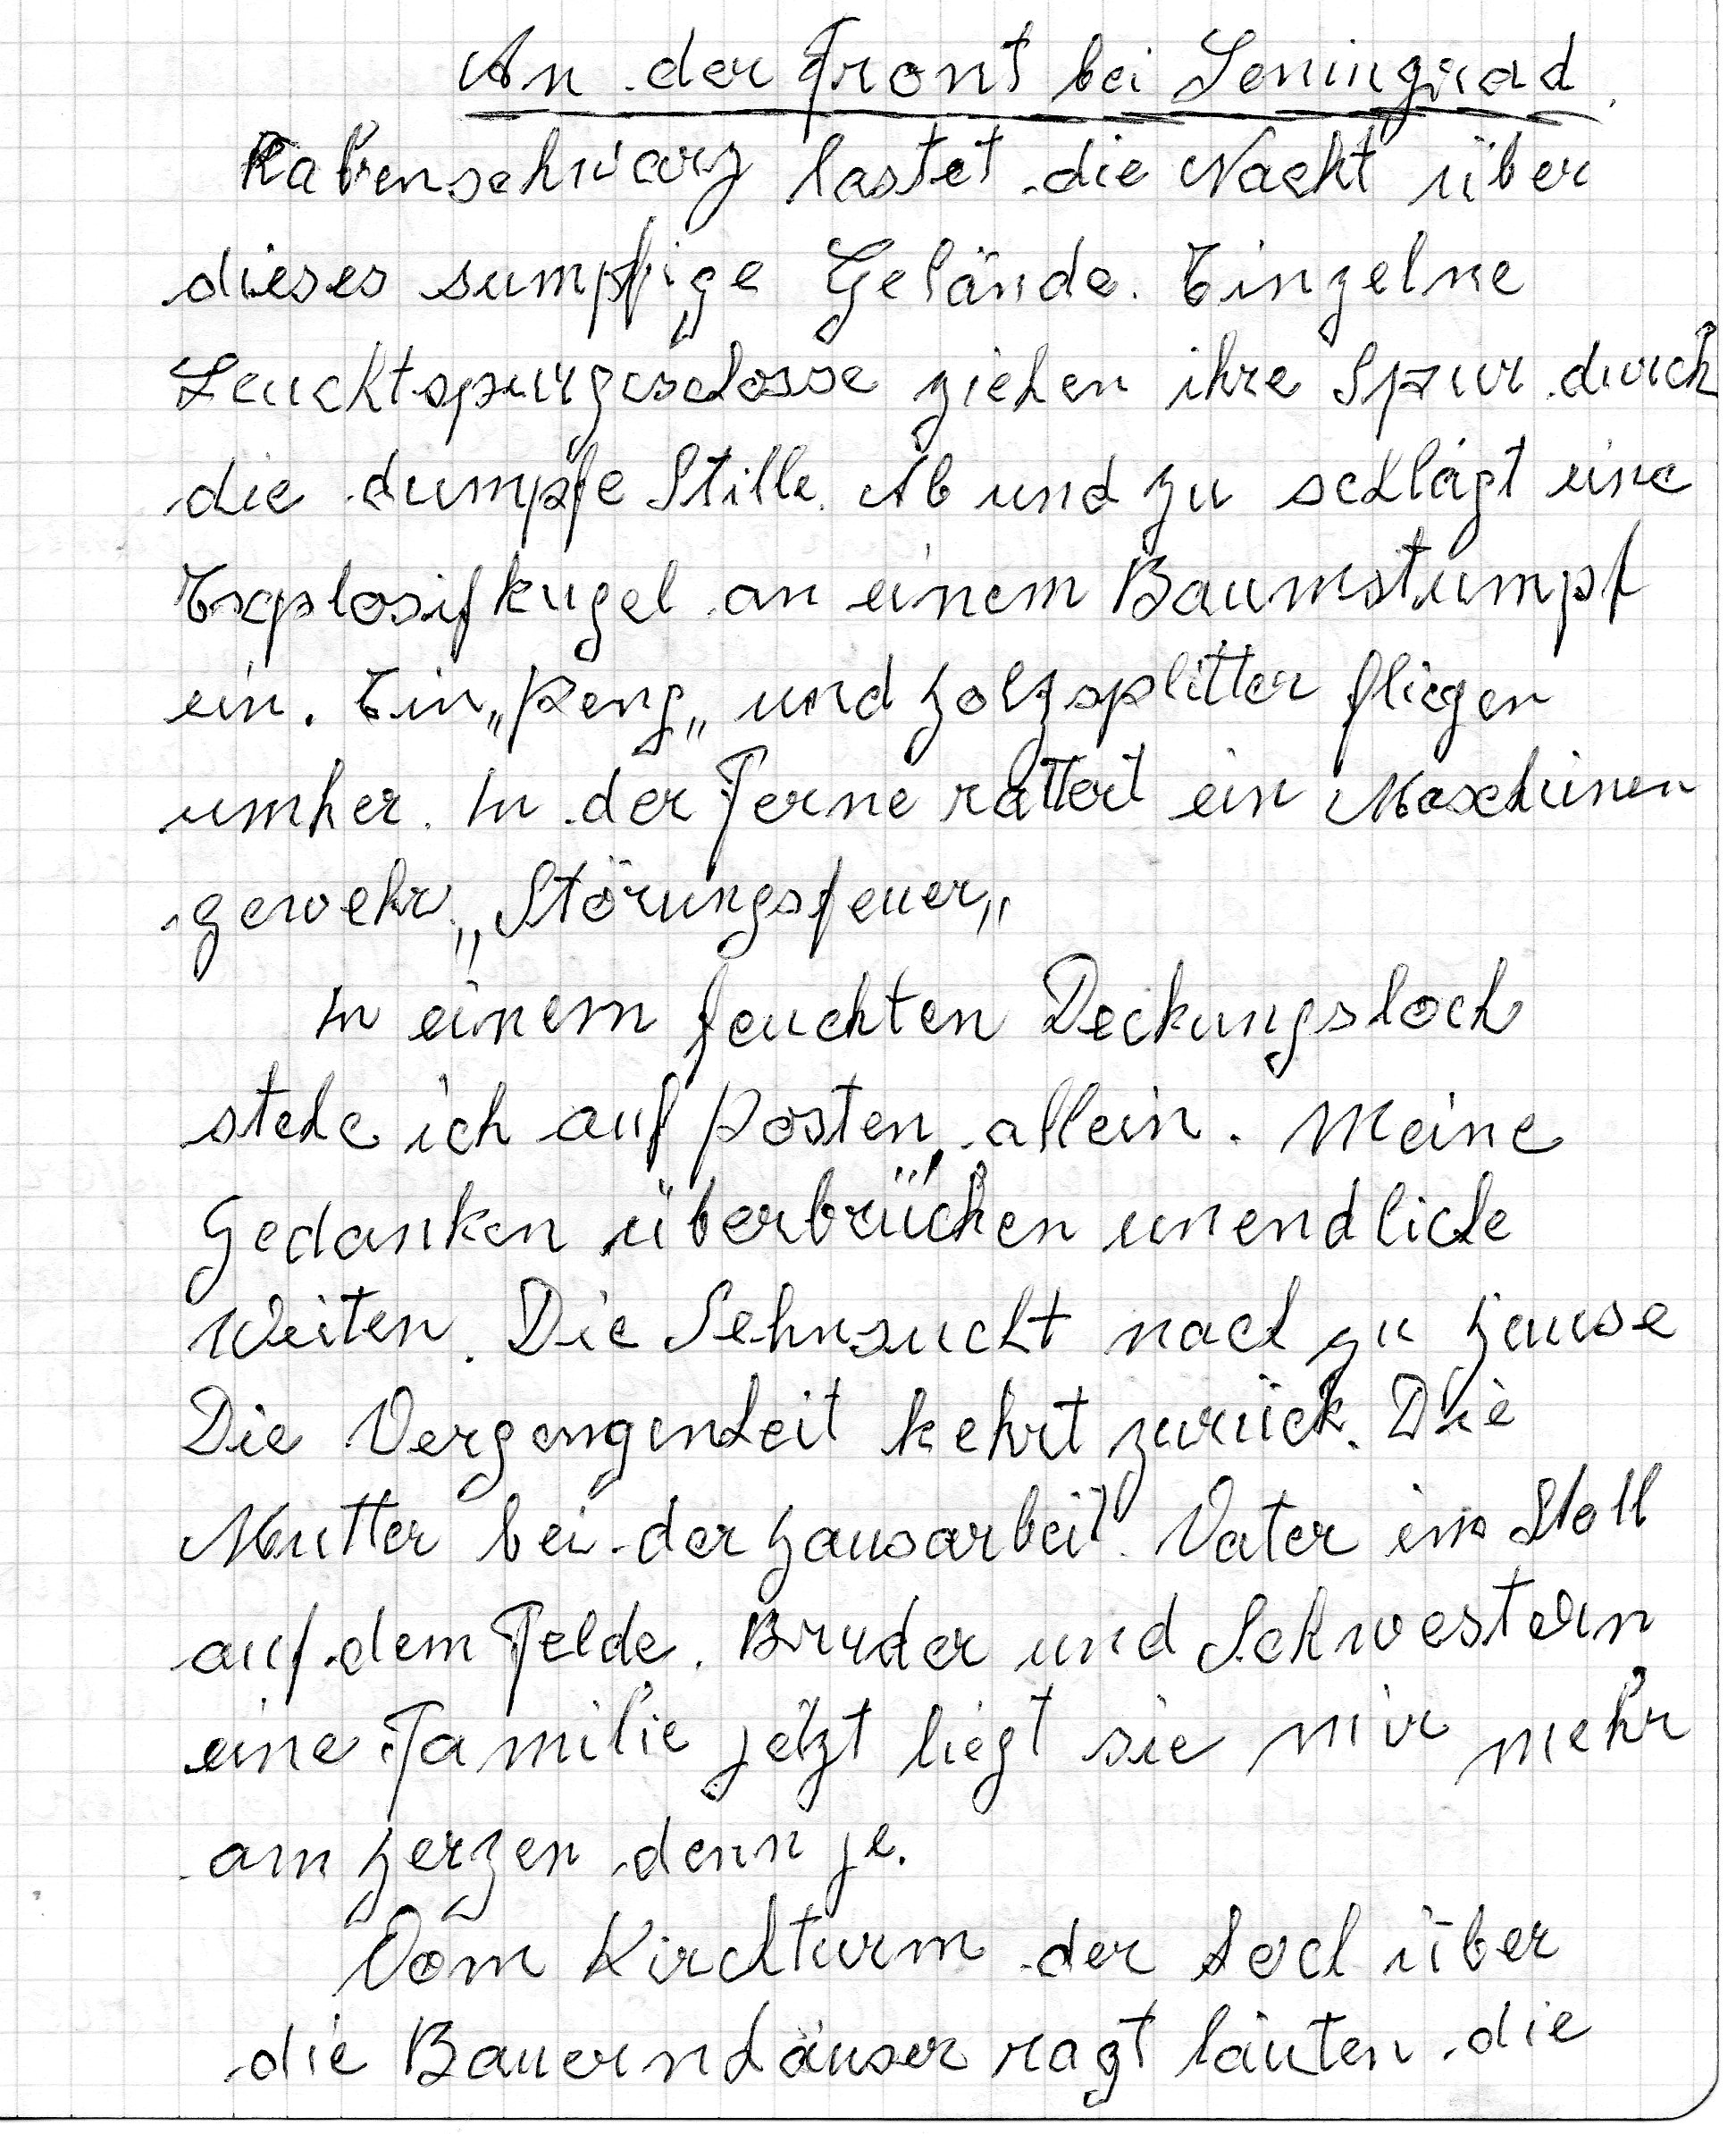 An der Front bei Leningrad.
Rabenschwarz lastet die Nacht über
dieses sumpfige Gelände. Einzelne
Leuchtspurgeschosse ziehen ihre Spur durch
die dumpfe Stille. Ab und zu schlägt eine
Explosifkugel an einem Baumstumpf
ein. Ein „Peng„ und Holzsplitter fliegen
umher. In der Ferne rattert ein Maschinen
gewehr. „Störungsfeuer„
In einem feuchten Deckungsloch
stehe ich auf Posten, allein. Meine
Gedanken überbrücken unendliche
Weiten. Die Sehnsucht nach zu Hause
Die Vergangenheit kehrt zurück. Die
Mutter bei der Hausarbeit. Vater im Stall
auf dem Felde. Bruder und Schwestern
eine Familie jetzt liegt sie mir mehr
am Herzen denn je.
Vom Kirchturm der hoch über
die Bauernhäuser ragt läuten die